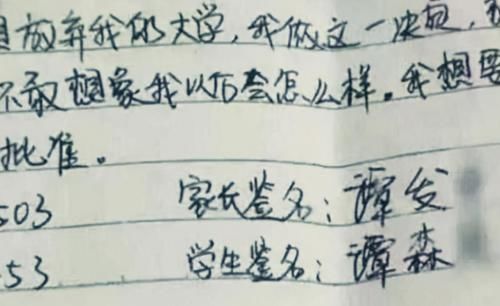 想放弃我的大学,我做这一决定,
不敢想象我以后会怎么样。我想要
批准。
503 家长签名:谭发
53 学生签名:谭森